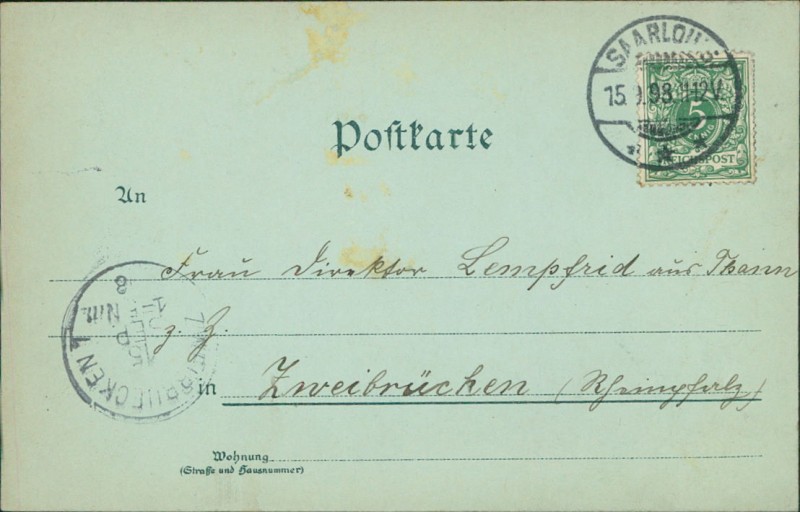 SAARLOUIS
15.9.98.11-12V.
5
REICHSPOST
Postkarte
An
Frau Direktor Lempfrid aus Thann
z. Z.
in Zweibrücken (Rheinpfalz)
ZWEIBRUECKEN 1
8 Nm.
Wohnung
(Straße und Hausnummer)